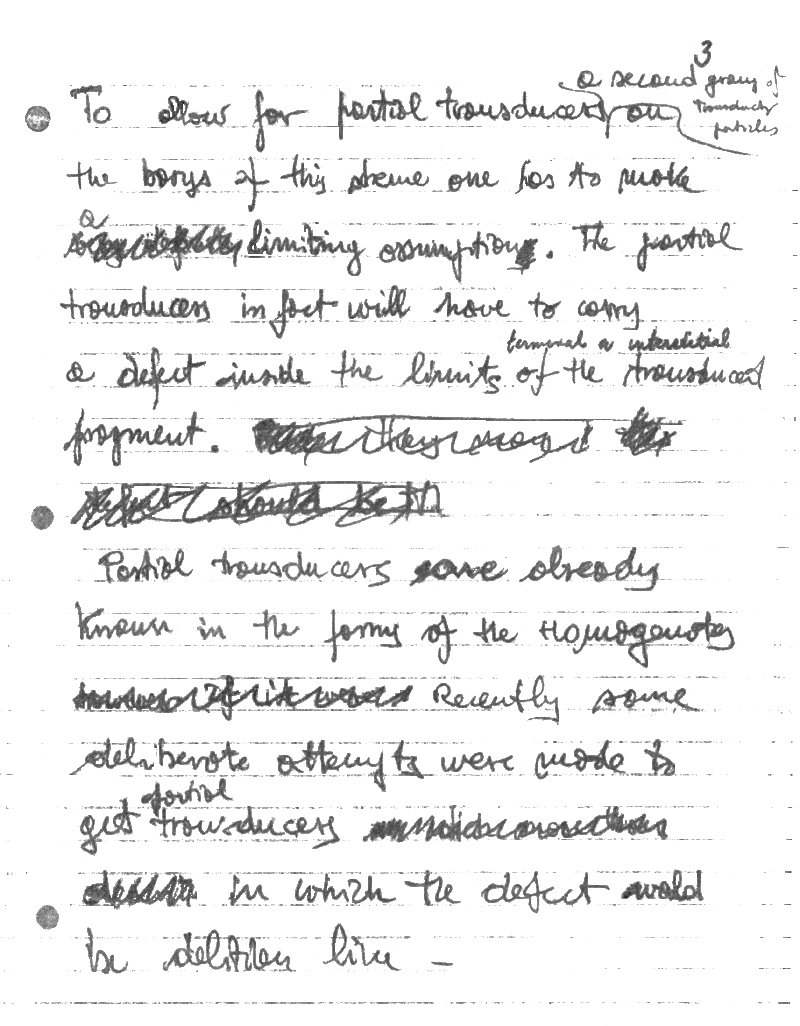 3
a second group of
transducing
particles
To allow for partial transducers on
the basys of this sheme one has to make
a
limiting assumption. The partial
transducers in fact will have to carry
terminal or interstitial
a defect inside the limits of the transduced
fragment. they may
should be in
Partial transducers are already
Known in the forms of the Homogenotes
Recently some
deliberate attempts were made to
partial
get transducers
in which the defect would
be delition like -